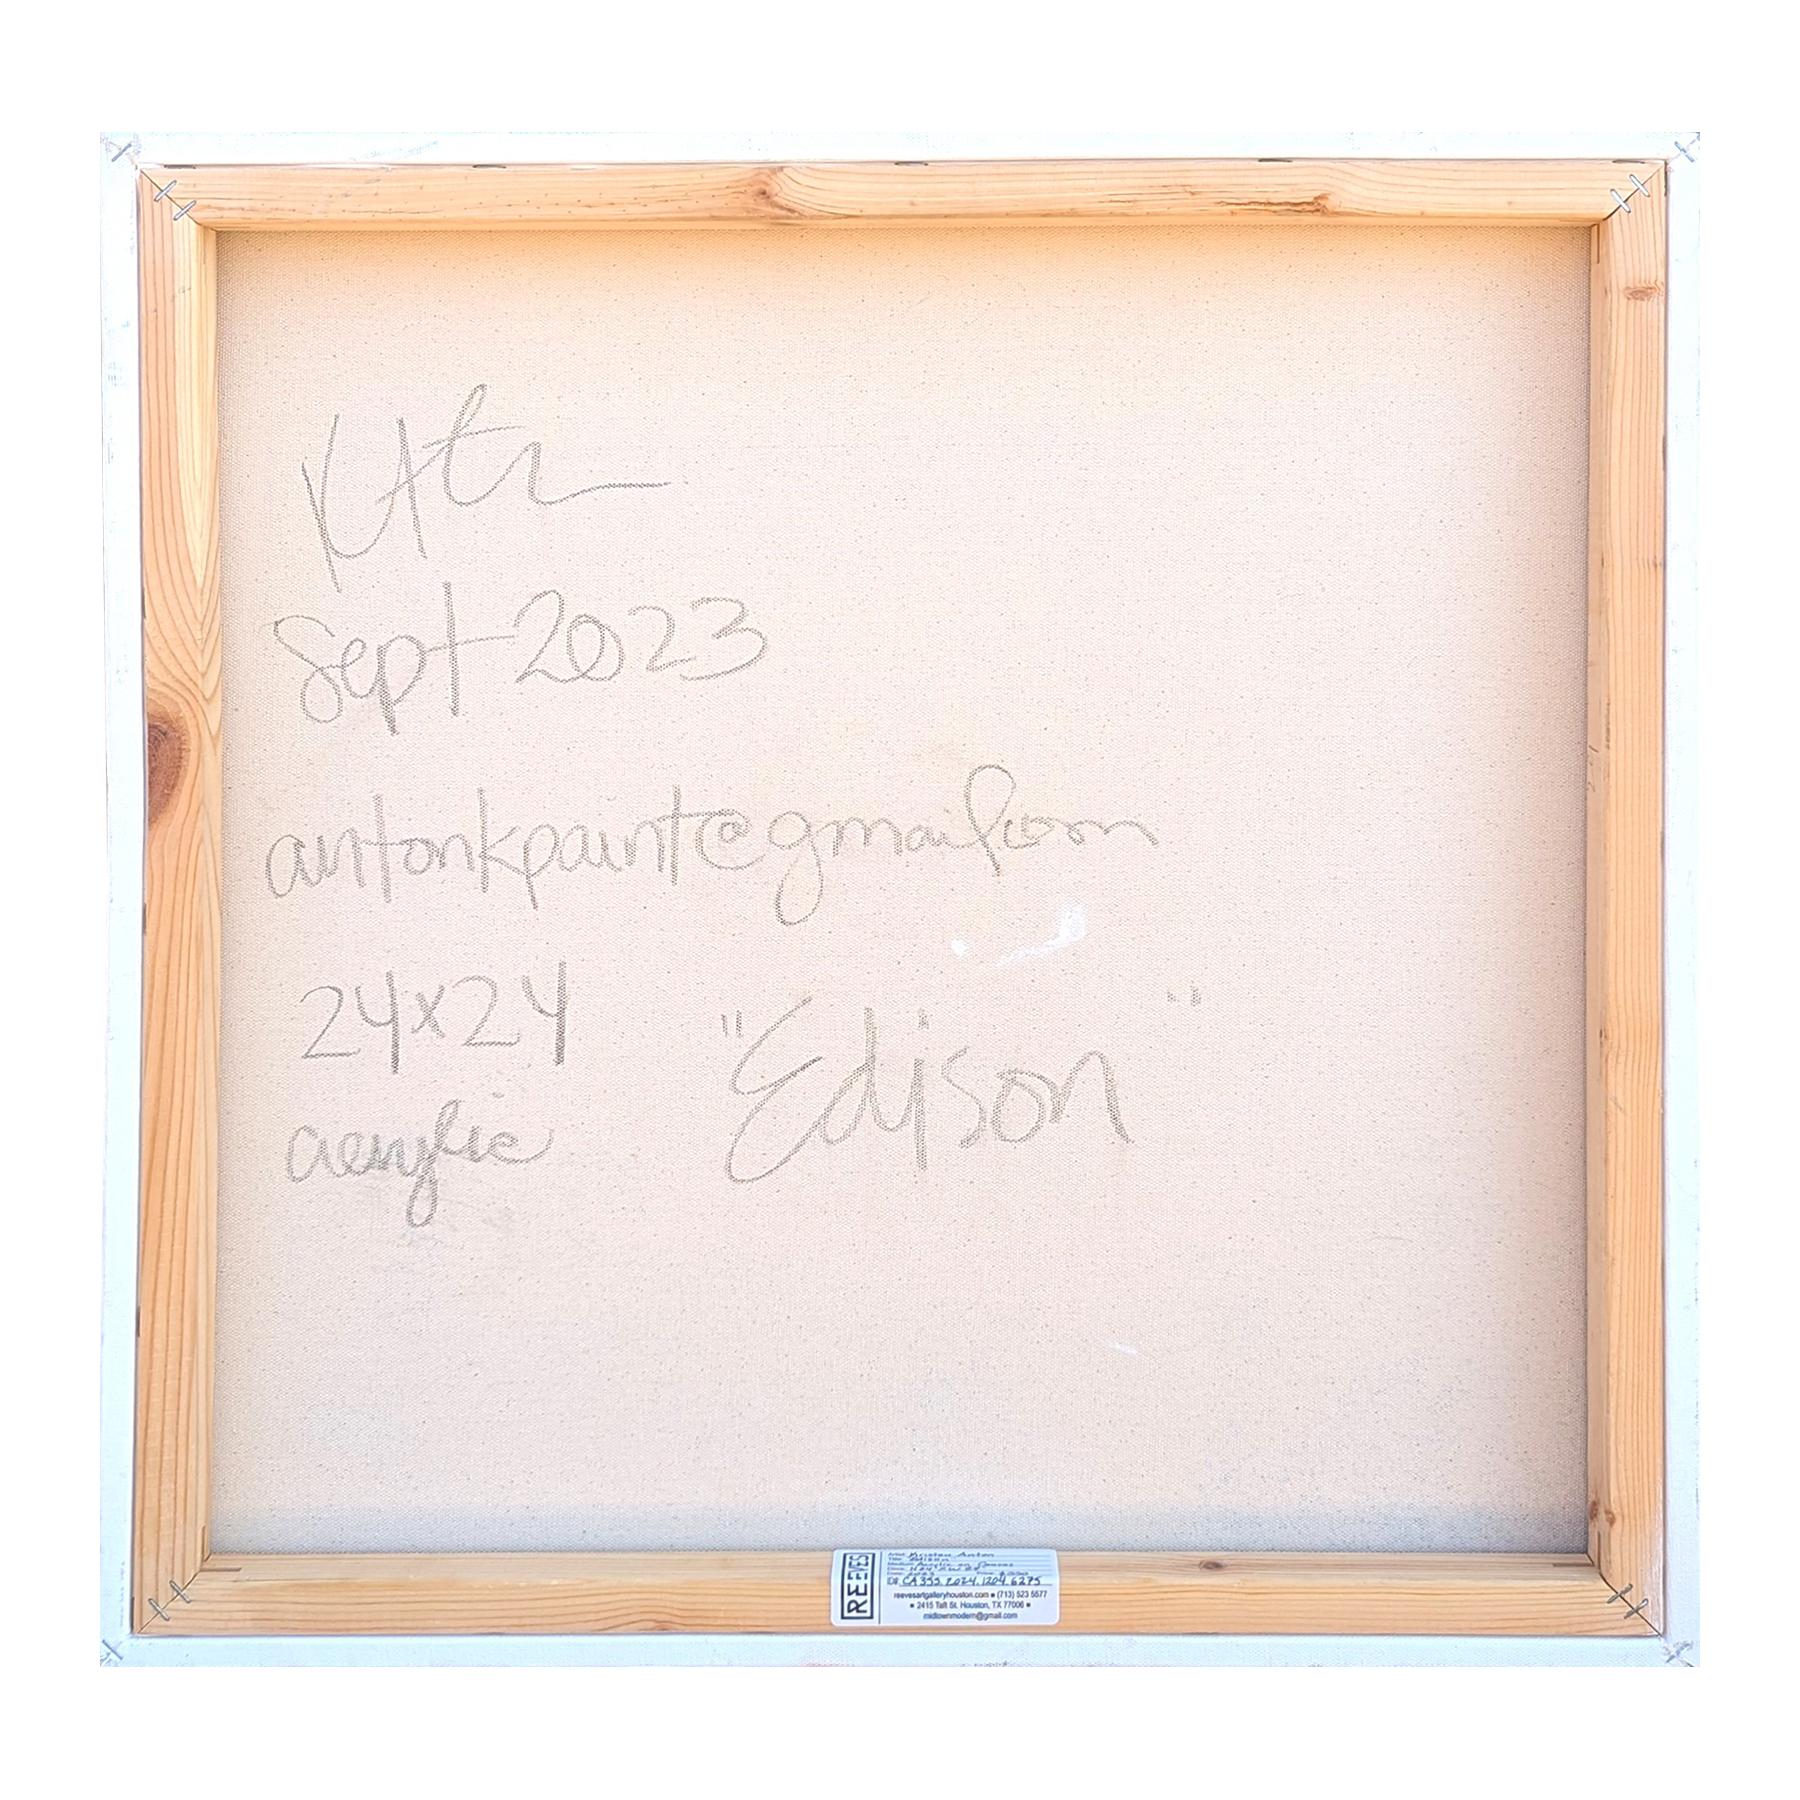 Sept 2023
antonkpaint@gmail.com
24x24
"Edison"
acrylic
REEVES
Artist: Kristen Anton
Title: Edison
Medium: Acrylic on Canvas
ID#: CA353.2024.1204.6275
reevesartgalleryhouston.com ■ (713) 523 5577
■ 2415 Taft St. Houston, TX 77006 ■
midtownmodern@gmail.com